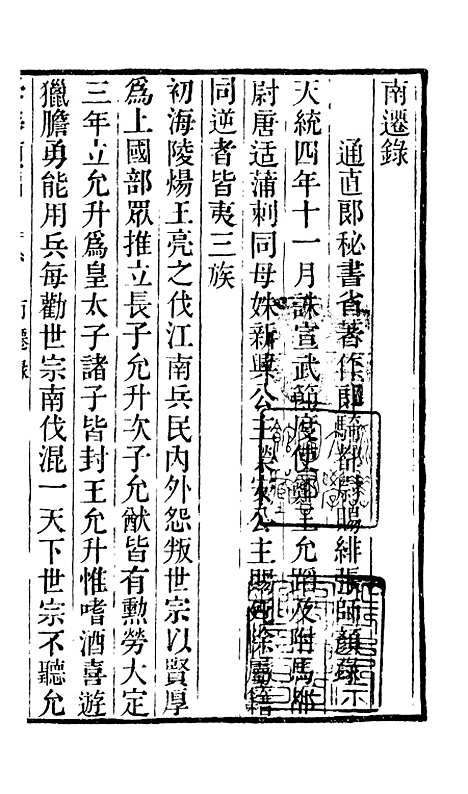 南遷錄
通直郎秘書省著作郎騎都尉賜緋張師顏錄
天統四年十一月誅宣武節度使鄭王允蹈及附馬都
尉唐适蒲刺同母妹新興公主榮安公主賜死除屬籍
同逆者皆夷三族
初海陵煬王亮之伐江南兵民內外怨叛世宗以賢厚
爲上國部眾推立長子允升次子允猷皆有勲勞大定
三年立允升爲皇太子諸子皆封王允升惟嗜酒喜遊
獵膽勇能用兵每勸世宗南伐混一天下世宗不聽允
南遷錄